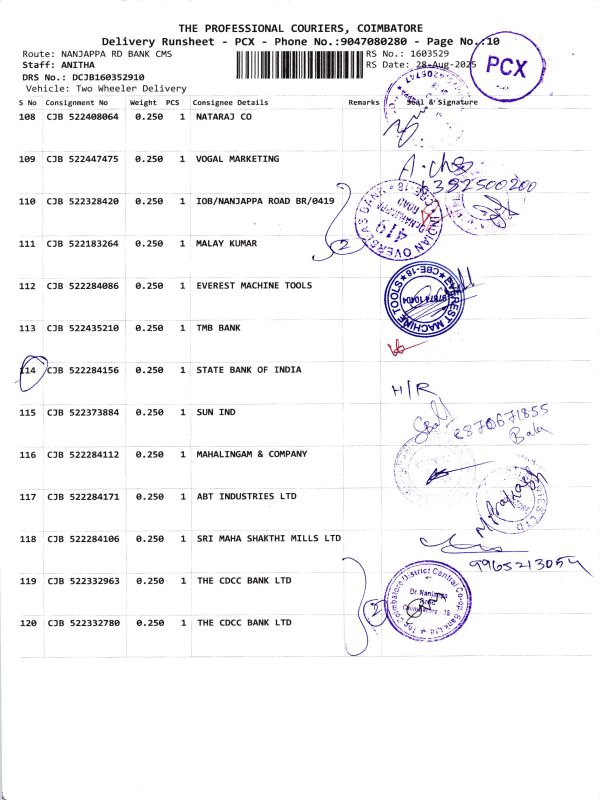 THE PROFESSIONAL COURIERS, COIMBATORE
Delivery Runsheet - PCX - Phone No.:9047080280 - Page No.:10
Route: NANJAPPA RD BANK CMS RS No.: 1603529
Staff: ANITHA RS Date: 28-Aug-2025
DRS No.: DCJB160352910
Vehicle: Two Wheeler Delivery
PCX
S No Consignment No Weight PCS Consignee Details Remarks Seal & Signature
108 CJB 522408064 0.250 1 NATARAJ CO
109 CJB 522447475 0.250 1 VOGAL MARKETING
6392500200
110 CJB 522328420 0.250 1 IOB/NANJAPPA ROAD BR/0419
INDIAN OVERSEAS BANK
419
ROAD
CBE-18
111 CJB 522183264 0.250 1 MALAY KUMAR
2
112 CJB 522284086 0.250 1 EVEREST MACHINE TOOLS
EVEREST MACHINE TOOLS ★ CBE-18 ★
97874 10404
113 CJB 522435210 0.250 1 TMB BANK
114 CJB 522284156 0.250 1 STATE BANK OF INDIA
H/R
115 CJB 522373884 0.250 1 SUN IND
8870671855
Bala
116 CJB 522284112 0.250 1 MAHALINGAM & COMPANY
117 CJB 522284171 0.250 1 ABT INDUSTRIES LTD
118 CJB 522284106 0.250 1 SRI MAHA SHAKTHI MILLS LTD
9965213054
119 CJB 522332963 0.250 1 THE CDCC BANK LTD
The Coimbatore District Central Co-op Bank Ltd
Dr.Nanjappa
Road
Coimbatore - 18
2
120 CJB 522332780 0.250 1 THE CDCC BANK LTD